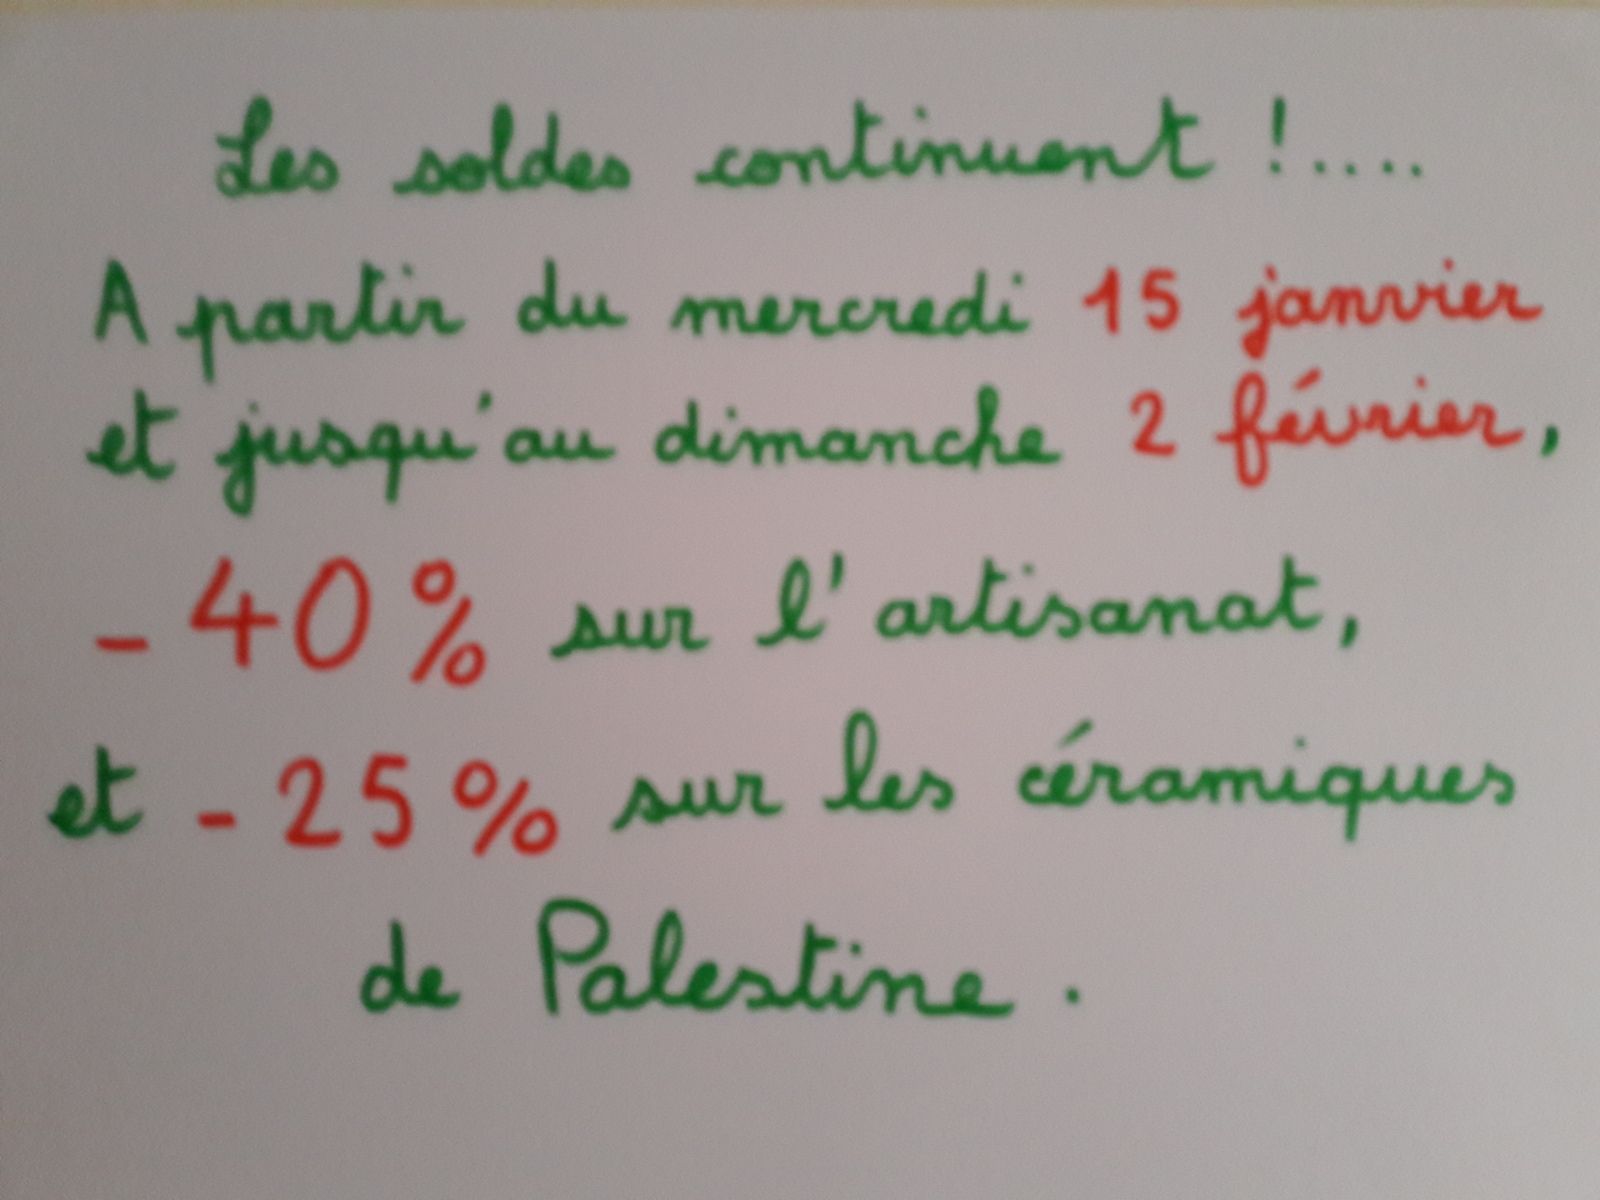 Les soldes continuent !....
A partir du mercredi 15 janvier
et jusqu'au dimanche 2 février,
- 40% sur l'artisanat,
et - 25% sur les céramiques
de Palestine.